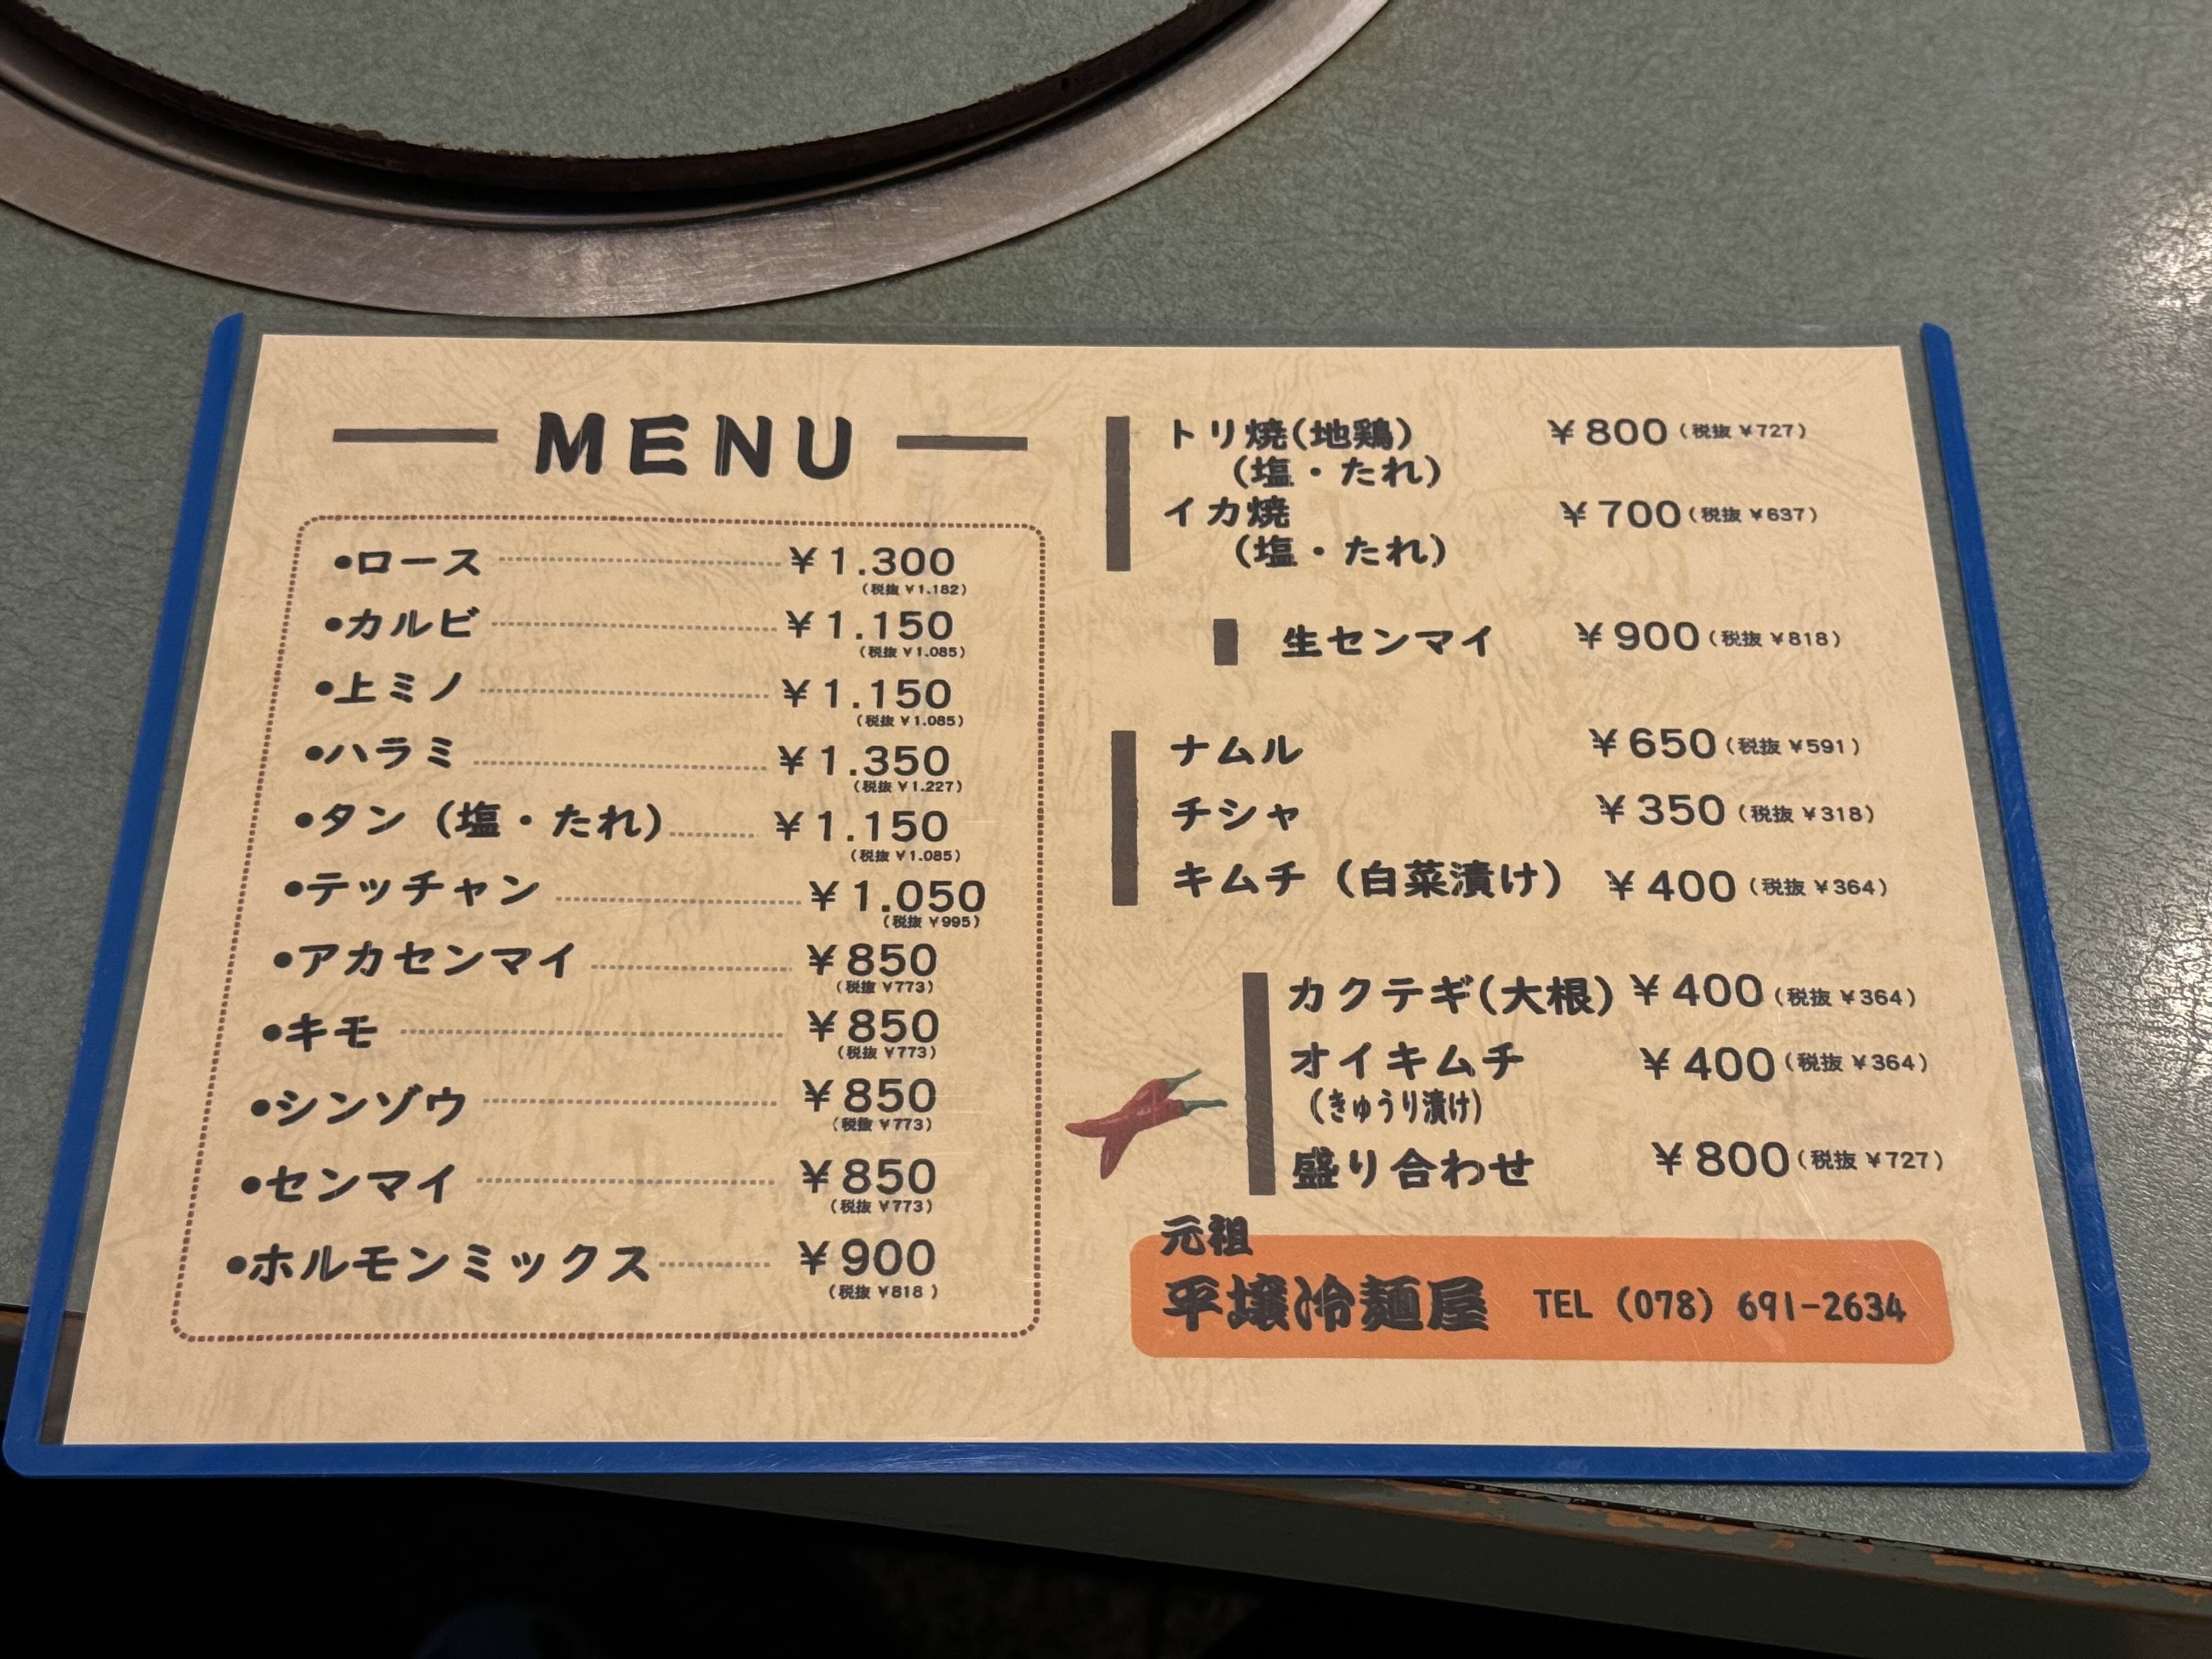 MENU
•ロース ¥1.300
(税抜 ¥1.182)
•カルビ ¥1.150
(税抜 ¥1.085)
•上ミノ ¥1.150
(税抜 ¥1.085)
•ハラミ ¥1.350
(税抜 ¥1.227)
•タン（塩・たれ） ¥1.150
(税抜 ¥1.085)
•テッチャン ¥1.050
(税抜 ¥995)
•アカセンマイ ¥850
(税抜 ¥773)
•キモ ¥850
(税抜 ¥773)
•シンゾウ ¥850
(税抜 ¥773)
•センマイ ¥850
(税抜 ¥773)
•ホルモンミックス ¥900
(税抜 ¥818)
トリ焼(地鶏) ¥800(税抜 ¥727)
(塩・たれ)
イカ焼 ¥700(税抜 ¥637)
(塩・たれ)
生センマイ ¥900(税抜 ¥818)
ナムル ¥650(税抜 ¥591)
チシャ ¥350(税抜 ¥318)
キムチ（白菜漬け） ¥400(税抜 ¥364)
カクテギ(大根) ¥400(税抜 ¥364)
オイキムチ ¥400(税抜 ¥364)
(きゅうり漬け)
盛り合わせ ¥800(税抜 ¥727)
元祖
平壌冷麺屋 TEL (078) 691-2634